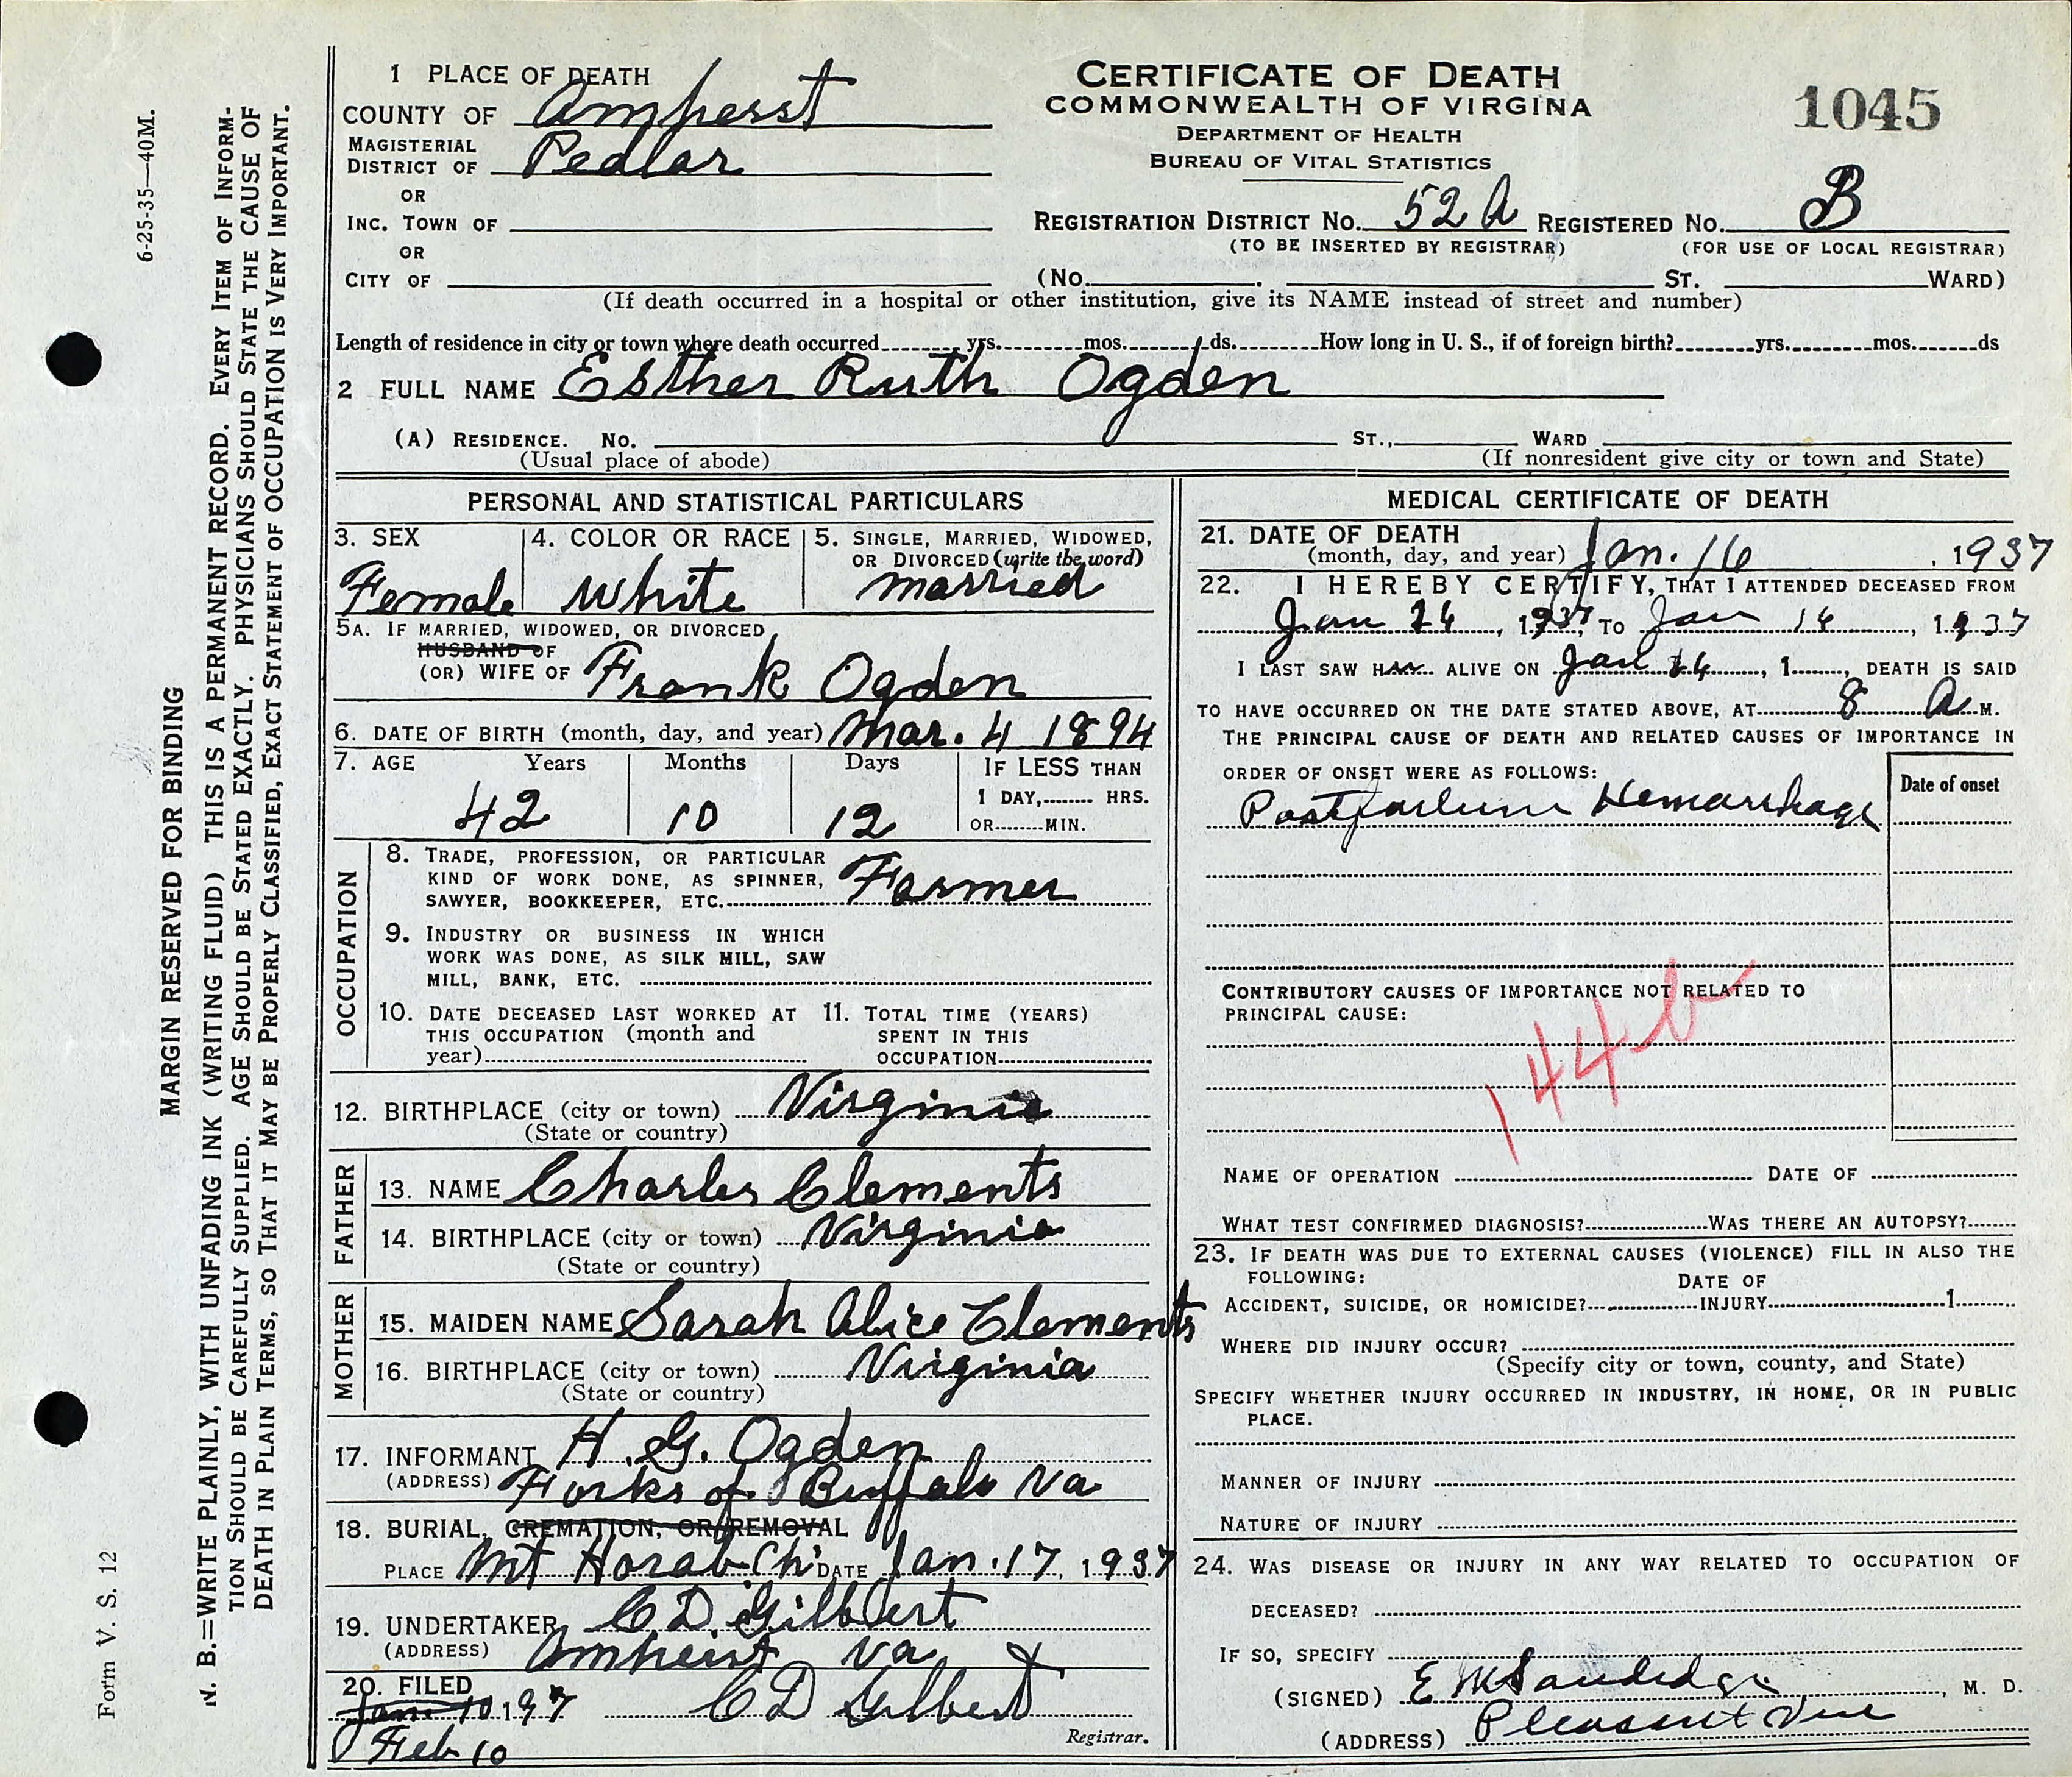 6-25-35—40M.
MARGIN RESERVED FOR BINDING
N. B.=WRITE PLAINLY, WITH UNFADING INK (WRITING FLUID) THIS IS A PERMANENT RECORD. EVERY ITEM OF INFORM-
TION SHOULD BE CAREFULLY SUPPLIED. AGE SHOULD BE STATED EXACTLY. PHYSICIANS SHOULD STATE THE CAUSE OF
DEATH IN PLAIN TERMS, SO THAT IT MAY BE PROPERLY CLASSIFIED, EXACT STATEMENT OF OCCUPATION IS VERY IMPORTANT.
Form V. S. 12
1 PLACE OF DEATH
COUNTY OF Amherst
MAGISTERIAL DISTRICT OF Pedlar
OR
INC. TOWN OF
OR
CITY OF
CERTIFICATE OF DEATH
COMMONWEALTH OF VIRGINA
DEPARTMENT OF HEALTH
BUREAU OF VITAL STATISTICS
1045
REGISTRATION DISTRICT NO. 52 A REGISTERED NO. B
(TO BE INSERTED BY REGISTRAR) (FOR USE OF LOCAL REGISTRAR)
(NO. ST. WARD)
(If death occurred in a hospital or other institution, give its NAME instead of street and number)
Length of residence in city or town where death occurred yrs. mos. ds. How long in U. S., if of foreign birth? yrs. mos. ds
2 FULL NAME Esther Ruth Ogden
(A) RESIDENCE. NO. ST., WARD
(Usual place of abode) (If nonresident give city or town and State)
PERSONAL AND STATISTICAL PARTICULARS
3. SEX 4. COLOR OR RACE 5. SINGLE, MARRIED, WIDOWED,
OR DIVORCED (write the word)
Female White married
5A. IF MARRIED, WIDOWED, OR DIVORCED
HUSBAND OF
(OR) WIFE OF Frank Ogden
6. DATE OF BIRTH (month, day, and year) Mar. 4 1894
7. AGE Years Months Days IF LESS THAN
1 DAY, HRS.
OR MIN.
42 10 12
OCCUPATION
8. TRADE, PROFESSION, OR PARTICULAR
KIND OF WORK DONE, AS SPINNER,
SAWYER, BOOKKEEPER, ETC. Farmer
9. INDUSTRY OR BUSINESS IN WHICH
WORK WAS DONE, AS SILK MILL, SAW
MILL, BANK, ETC.
10. DATE DECEASED LAST WORKED AT
THIS OCCUPATION (month and
year)
11. TOTAL TIME (YEARS)
SPENT IN THIS
OCCUPATION
12. BIRTHPLACE (city or town) Virginia
(State or country)
FATHER
13. NAME Charles Clements
14. BIRTHPLACE (city or town) Virginia
(State or country)
MOTHER
15. MAIDEN NAME Sarah Alice Clements
16. BIRTHPLACE (city or town) Virginia
(State or country)
17. INFORMANT H. G. Ogden
(ADDRESS) Forks of Buffalo Va
18. BURIAL, CREMATION, OR REMOVAL
PLACE Mt Horab Ch DATE Jan. 17, 1937
19. UNDERTAKER C. D. Gilbert
(ADDRESS) Amherst Va
20. FILED
Jan 10 1937 C D Gilbert
Feb 10
Registrar.
MEDICAL CERTIFICATE OF DEATH
21. DATE OF DEATH
(month, day, and year) Jan. 16, 1937
22. I HEREBY CERTIFY, THAT I ATTENDED DECEASED FROM
Jan 16, 1937, TO Jan 16, 1937
I LAST SAW H ALIVE ON Jan 16, 1, DEATH IS SAID
TO HAVE OCCURRED ON THE DATE STATED ABOVE, AT 8 A M.
THE PRINCIPAL CAUSE OF DEATH AND RELATED CAUSES OF IMPORTANCE IN
ORDER OF ONSET WERE AS FOLLOWS:
Date of onset
Postpartum Hemorrhage
CONTRIBUTORY CAUSES OF IMPORTANCE NOT RELATED TO
PRINCIPAL CAUSE:
144b
NAME OF OPERATION DATE OF
WHAT TEST CONFIRMED DIAGNOSIS? WAS THERE AN AUTOPSY?
23. IF DEATH WAS DUE TO EXTERNAL CAUSES (VIOLENCE) FILL IN ALSO THE
FOLLOWING:
DATE OF
ACCIDENT, SUICIDE, OR HOMICIDE? INJURY 1
WHERE DID INJURY OCCUR?
(Specify city or town, county, and State)
SPECIFY WHETHER INJURY OCCURRED IN INDUSTRY, IN HOME, OR IN PUBLIC
PLACE.
MANNER OF INJURY
NATURE OF INJURY
24. WAS DISEASE OR INJURY IN ANY WAY RELATED TO OCCUPATION OF
DECEASED?
IF SO, SPECIFY
(SIGNED) E M Sandidge, M. D.
(ADDRESS) Pleasant View